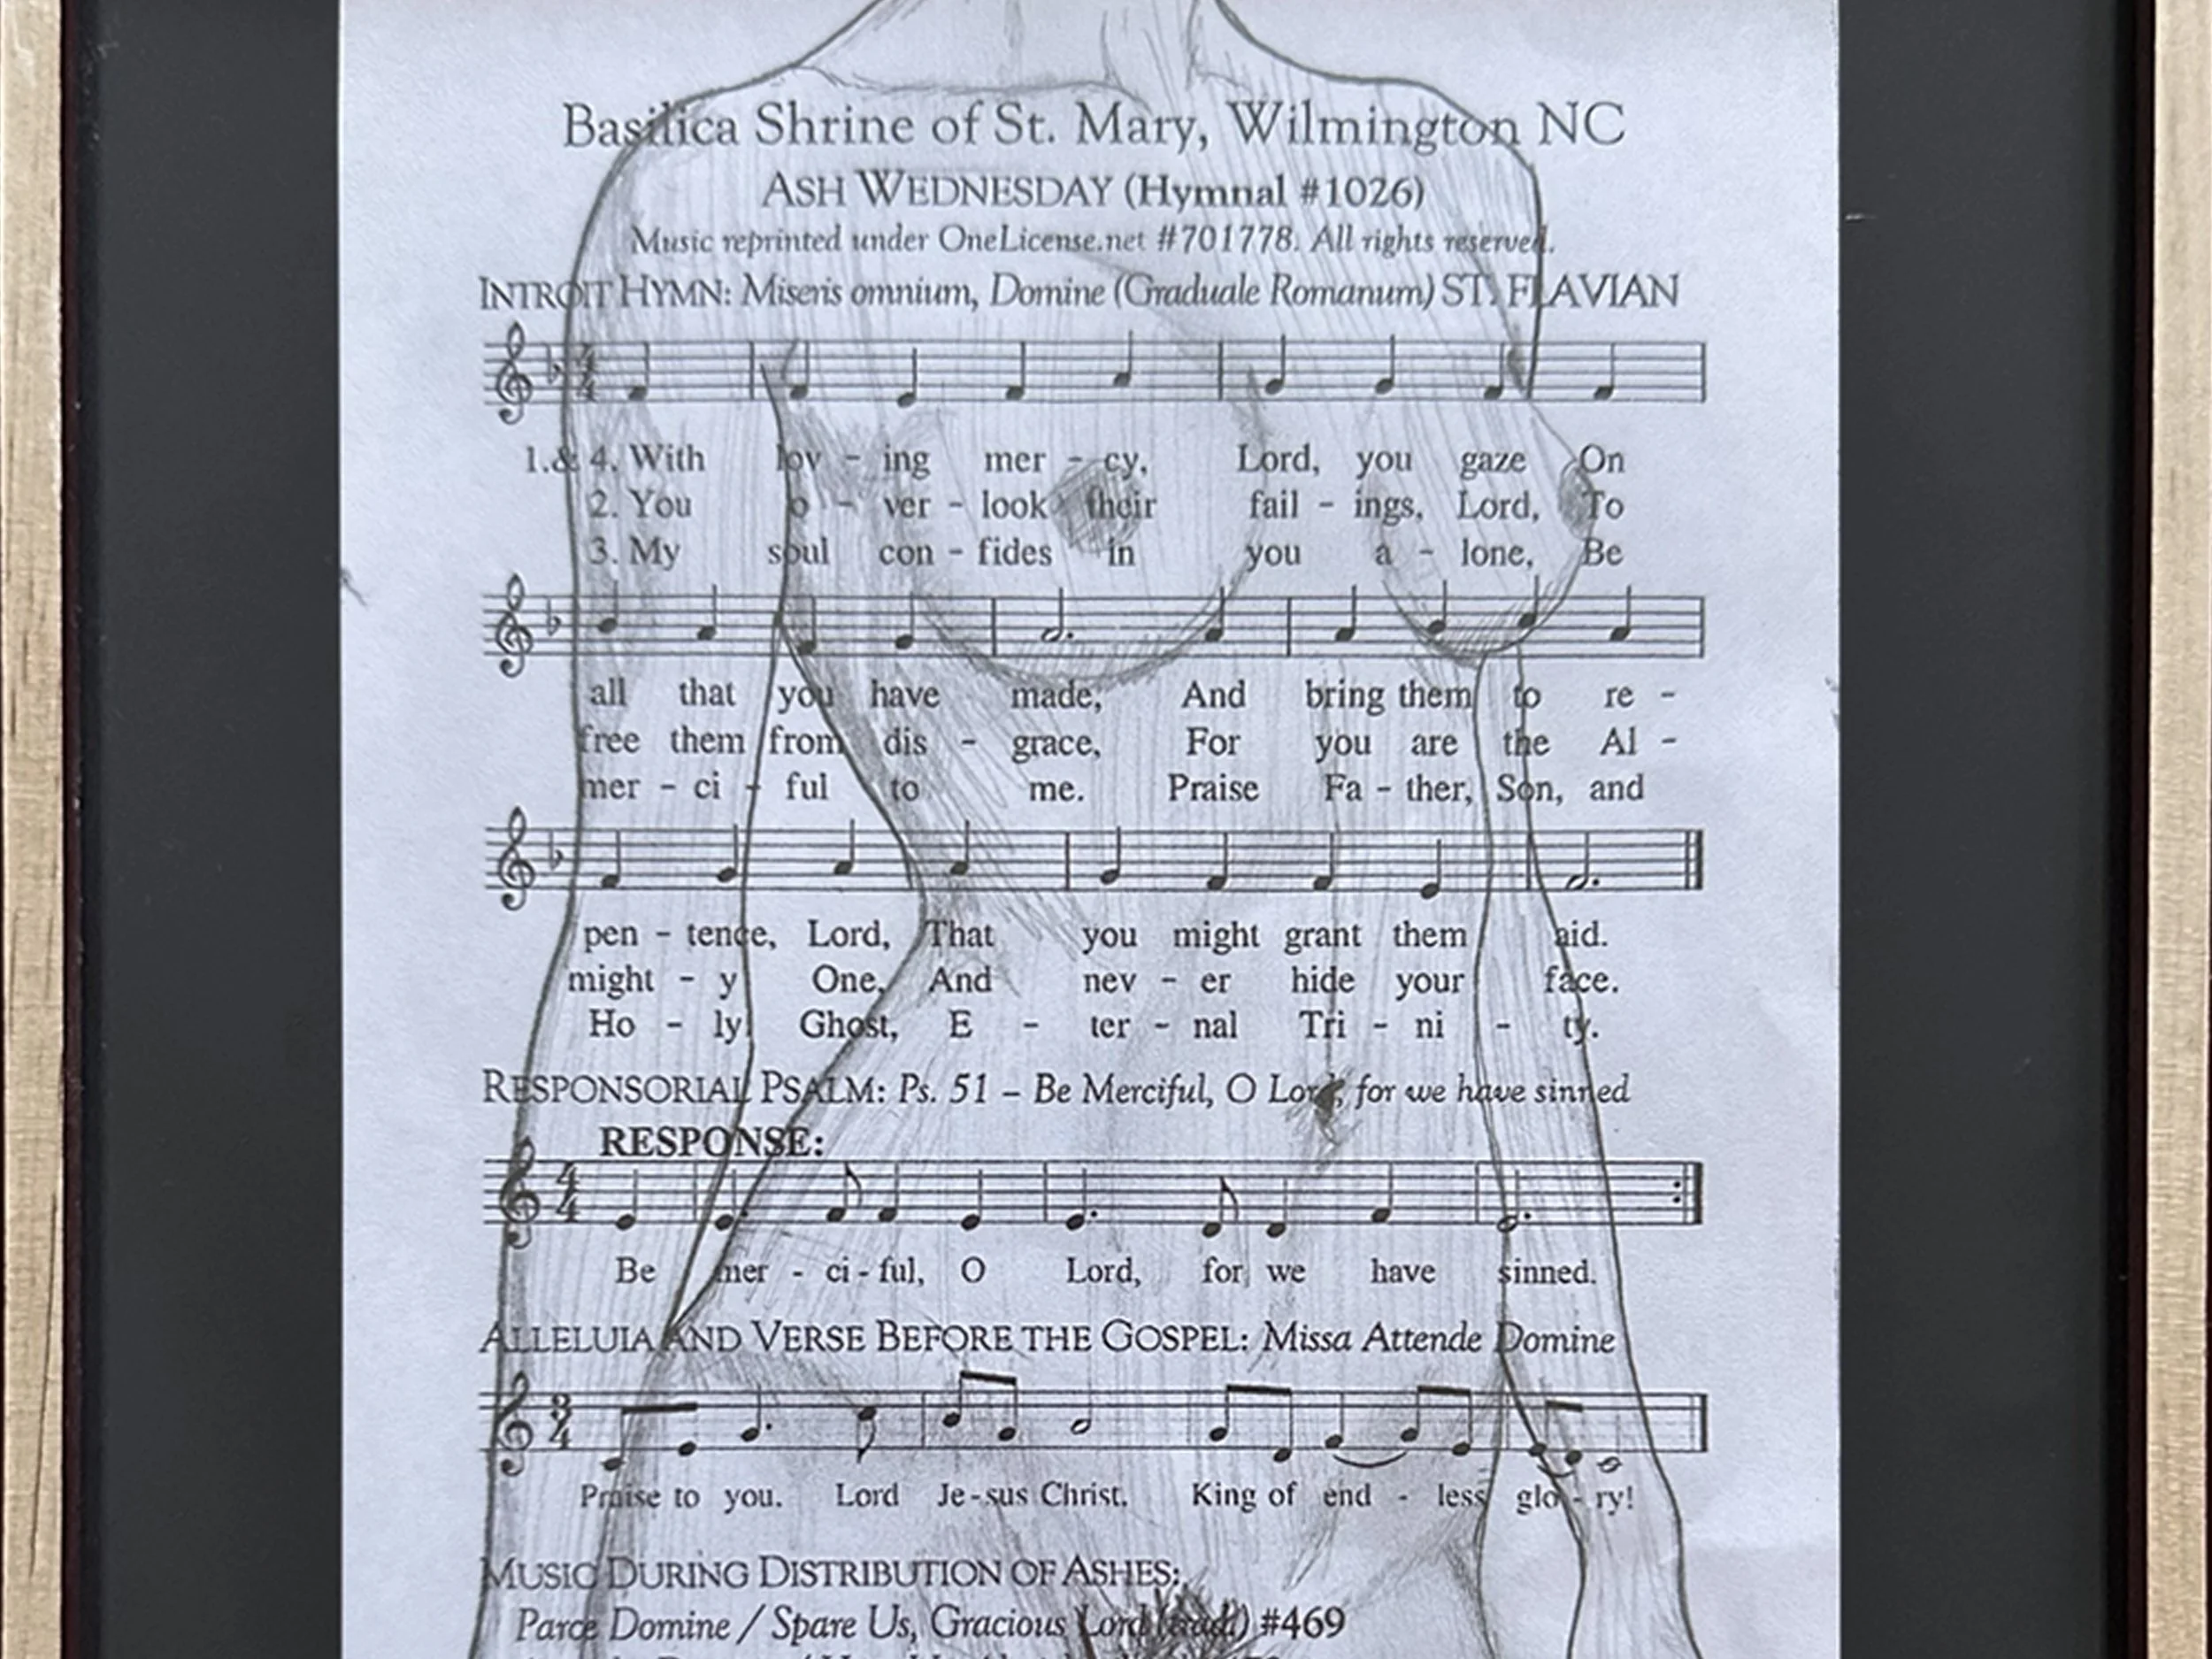 Basilica Shrine of St. Mary, Wilmington NC
ASH WEDNESDAY (Hymnal #1026)
Music reprinted under OneLicense.net #701778. All rights reserved.
INTROIT HYMN: Miseris omnium, Domine (Graduale Romanum) ST. FLAVIAN
1.& 4. With lov - ing mer - cy, Lord, you gaze On
2. You o - ver - look their fail - ings, Lord, To
3. My soul con - fides in you a - lone, Be
all that you have made, And bring them to re -
free them from dis - grace, For you are the Al -
mer - ci - ful to me. Praise Fa - ther, Son, and
pen - tence, Lord, That you might grant them aid.
might - y One, And nev - er hide your face.
Ho - ly Ghost, E - ter - nal Tri - ni - ty.
RESPONSORIAL PSALM: Ps. 51 – Be Merciful, O Lord, for we have sinned
RESPONSE:
Be mer - ci - ful, O Lord, for we have sinned.
ALLELUIA AND VERSE BEFORE THE GOSPEL: Missa Attende Domine
Praise to you. Lord Je - sus Christ. King of end - less glo - ry!
MUSIC DURING DISTRIBUTION OF ASHES:
Parce Domine / Spare Us, Gracious Lord (trad.) #469